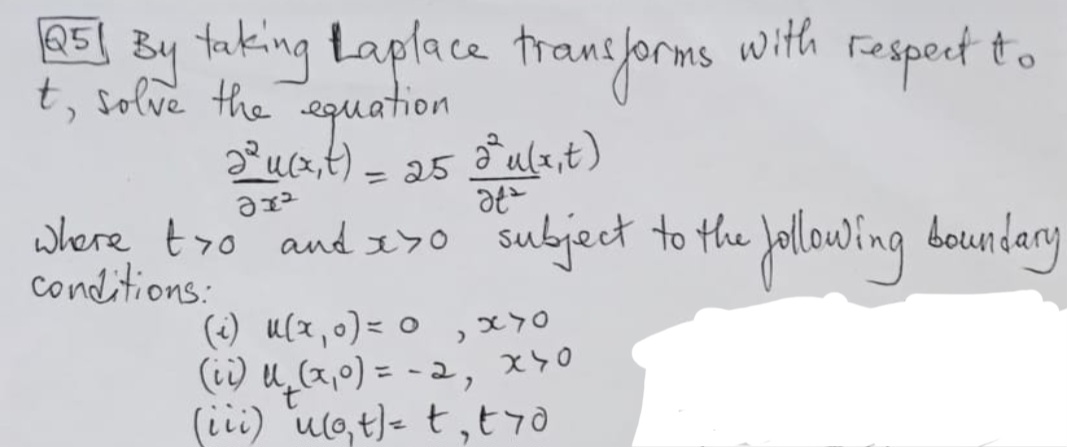 Q5 By taking Laplace transforms with respect to
t, solve the equation
∂²u(x,t)/∂x² = 25 ∂²u(x,t)/∂t²
where t>0 and x>0 subject to the following boundary
conditions:
(i) u(x,0) = 0 , x>0
(ii) u_t(x,0) = -2, x>0
(iii) u(0,t) = t, t>0